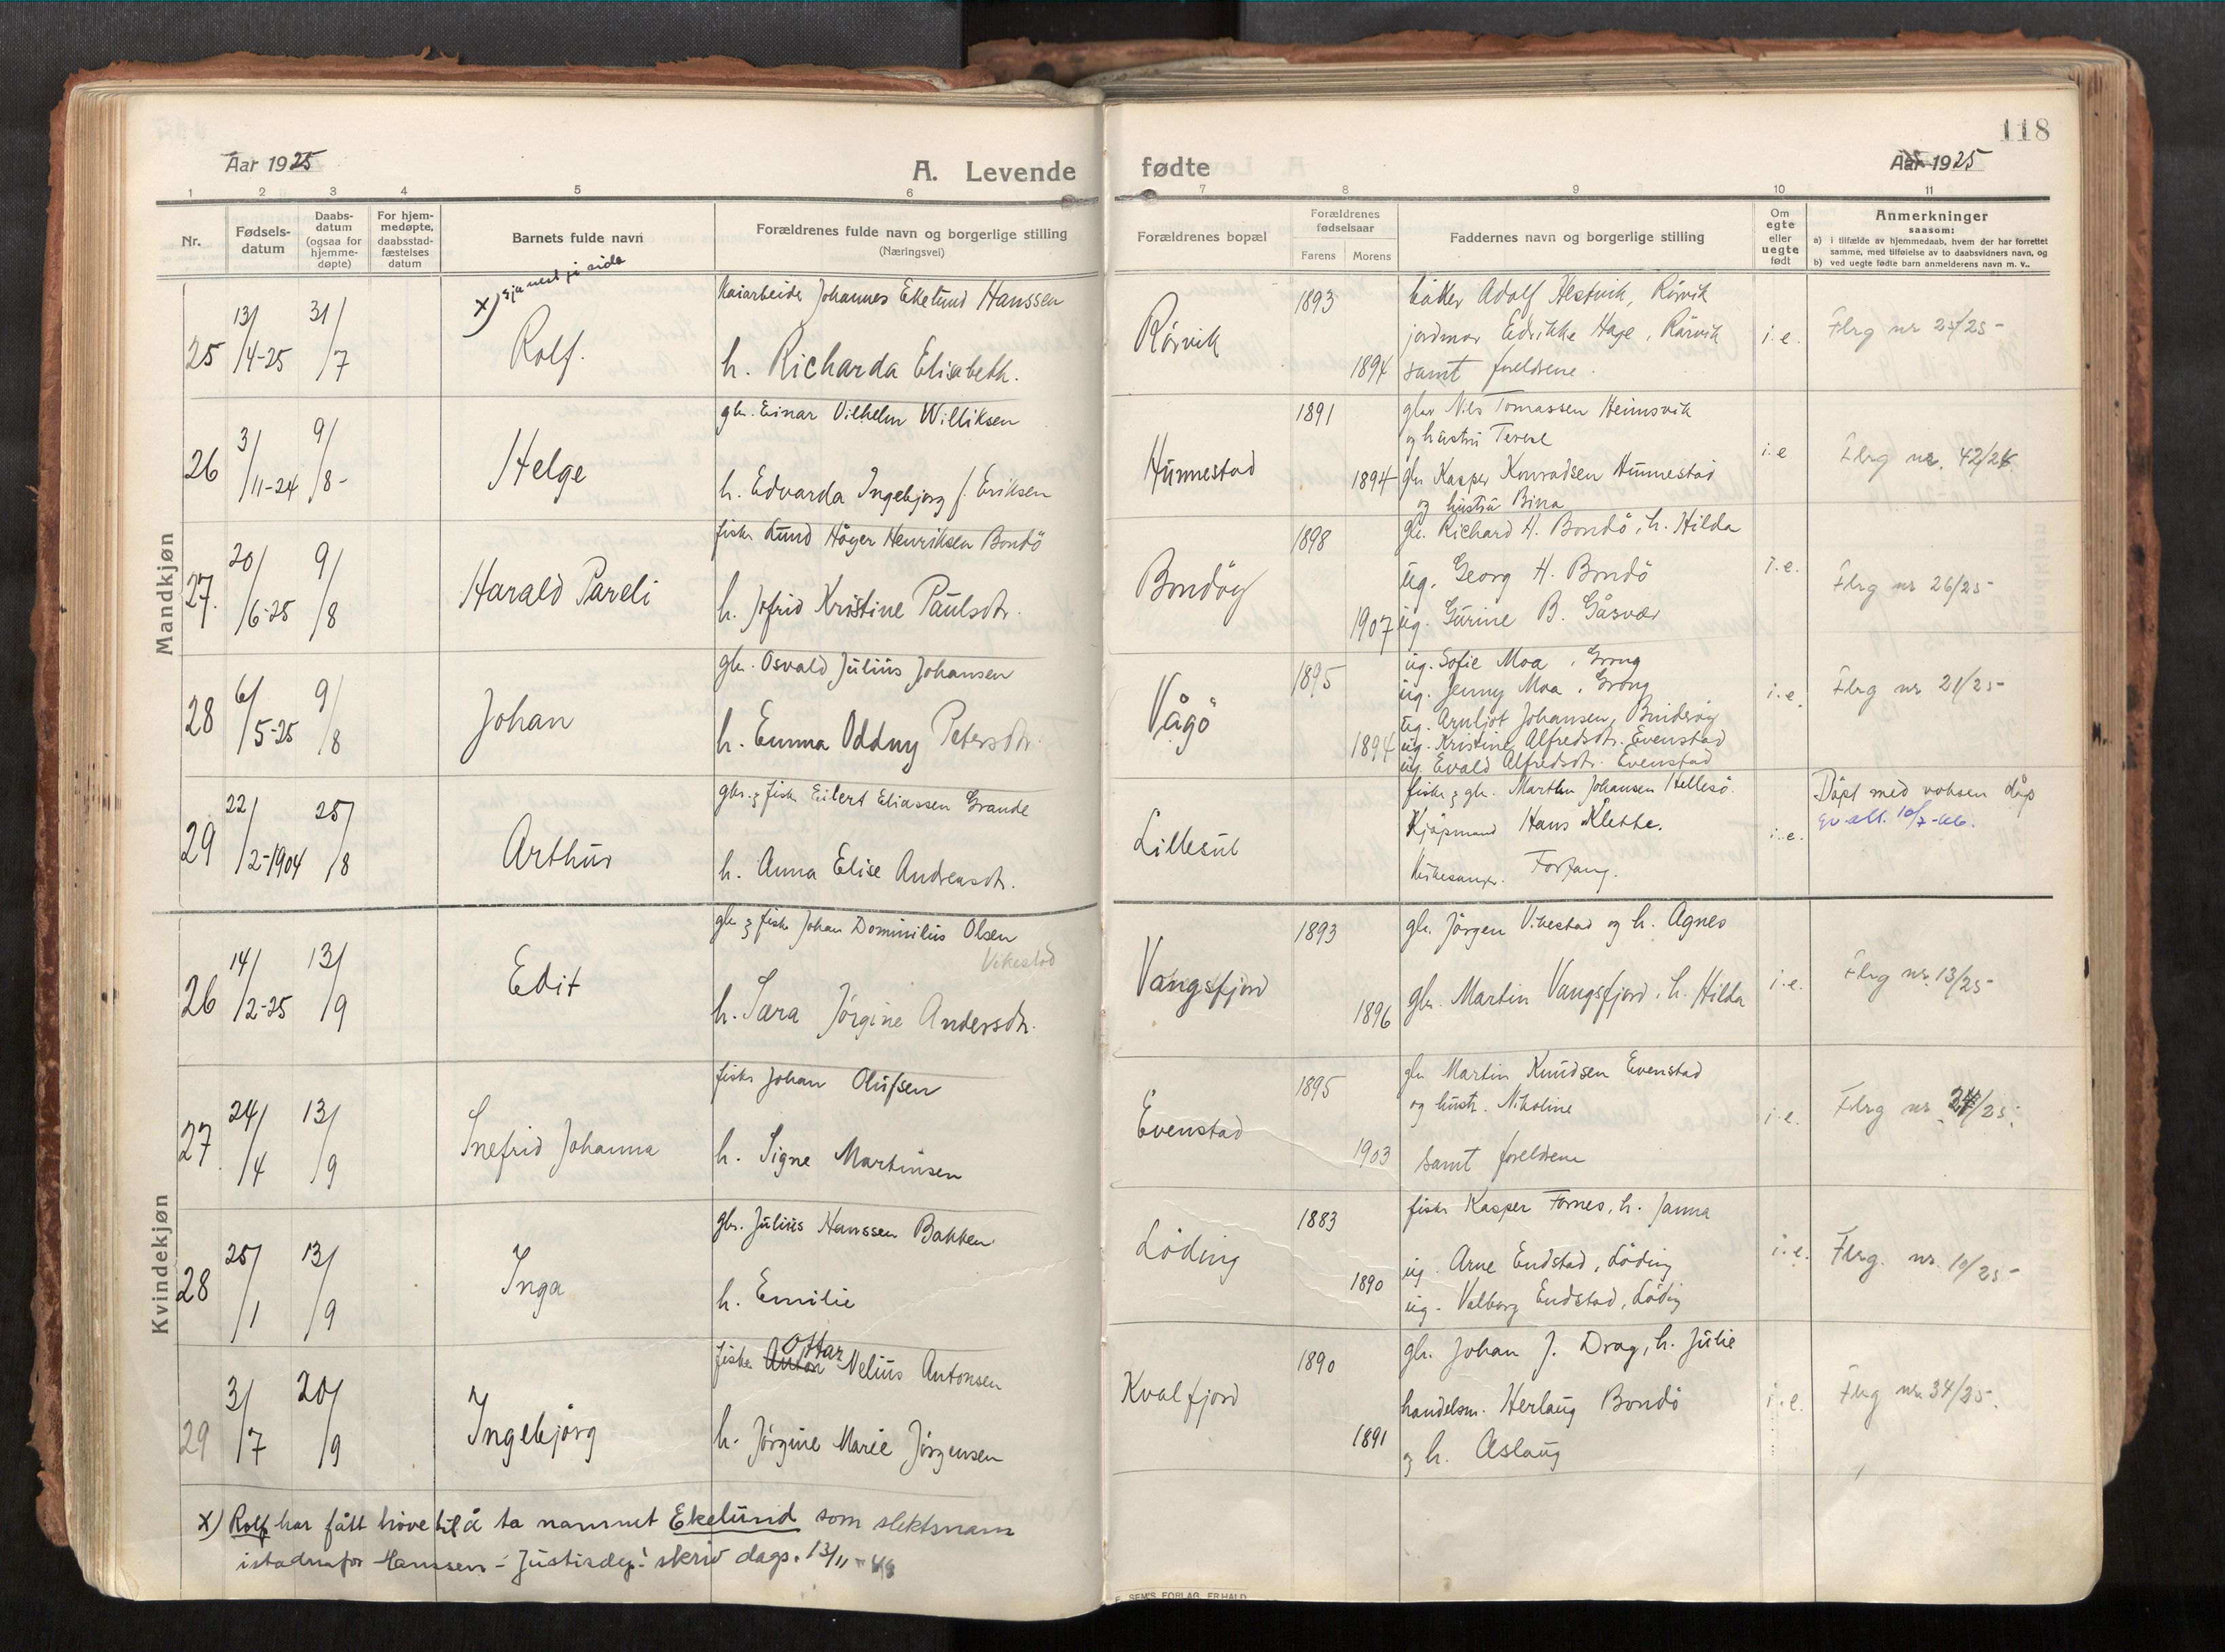 118
Aar 1925
A. Levende
fødte
Aar 1925
1 2 3 4 5 6 7 8 9 10 11
Nr.
Fødsels-
datum
Daabs-
datum
(ogsaa for
hjemme-
døpte)
For hjem-
medøpte,
daabsstad-
fæstelses
datum
Barnets fulde navn
Forældrenes fulde navn og borgerlige stilling
(Næringsvei)
Forældrenes bopæl
Forældrenes
fødselsaar
Farens Morens
Faddernes navn og borgerlige stilling
Om
egte
eller
uegte
født
Anmerkninger
saasom:
a) i tilfælde av hjemmedaab, hvem der har forrettet
samme, med tilføielse av to daabsvidners navn, og
b) ved uegte fødte barn anmelderens navn m. v.
Mandkjøn
x) sjå nest på sida
25 13/4-25 31/7 Rolf.
Kaiarbeider Johannes Ekelund Hanssen
h. Richarda Elisabeth.
Rörvik 1893 1894
bakker Adolf Hestvik, Rörvik
jordmor Edrikke Hage, Rörvik
samt foreldrene.
i.e. Flrg nr 25/25-
26 3/11-24 9/8- Helge
gbr. Einar Vilhelm Williksen
h. Edvarda Ingebjorg f. Eriksen
Hunnestad 1891 1894
gbr Nils Tomassen Heimsvik
og hustru Terese
gbr Kasper Konradsen Hunnestad
og hustru Bina
i.e Flrg nr. 42/24
27. 20/6-25 9/8 Harald Pareli
fisker Knud Höger Henriksen Bondö
h. Jofrid Kristine Paulsdtr.
Bondöy 1898 1907
gbr. Richard H. Bondö, h. Hilda
ug. Georg H. Bondö
ug. Gurine B. Gåsvær
i.e. Flrg nr 26/25-
28 6/5-25 9/8 Johan
gbr. Osvald Julius Johansen
h. Emma Oddny Petersdtr.
Vågö 1895 1894
ug. Sofie Moa, Grong
ug. Jenny Moa, Grong
ug. Arnljot Johansen, Bindöy
ug. Kristine Alfredsdtr. Evenstad
ug. Evald Alfredsdtr. Evenstad
i.e. Flrg nr 21/25-
29 22/2-1904 25/8 Arthur
gbr. & fisk Eilert Eliassen Grande
h. Anna Elise Andreasdtr.
Lillesul
fisker & gbr. Martin Johansen Hellesö.
Kjöpmand Hans Klette.
Kirkesanger. Forfang.
i.e.
Döpt med voksen dåp
10/7-46.
Kvindekjøn
26 14/2-25 13/9 Edit
gbr & fisk Johan Dominikus Olsen
Vikestad
h. Sara Jörgine Andersdtr.
Vangsfjord 1893 1896
gbr. Jörgen Vikestad og h. Agnes
gbr. Martin Vangsfjord, h. Hilda
i.e. Flrg nr. 13/25-
27 24/4 13/9 Snefrid Johanna
fisker Johan Olufsen
h. Signe Martinsen
Evenstad 1895 1903
gbr Martin Knudsen Evenstad
og hustr. Nikoline
samt foreldrene
i.e. Flrg nr. 24/25.
28 25/1 13/9 Inga
gbr. Julius Hanssen Bakken
h. Emilie
Löding 1883 1890
fisker Kasper Fornes, h. Janna
ug. Arne Endstad, Löding
ug. Valborg Endstad, Löding
i.e. Flrg. nr. 10/25-
29 3/7 20/9 Ingebjörg
Ottar
fisker Anton Nelius Antonsen
h. Jörgine Marie Jörgensen
Kvalfjord 1890 1891
gbr. Johan J. Drag, h. Julie
handelsm. Herlaug Bondö
og h. Aslaug
i.e. Flrg nr. 34/25.
x) Rolf har fått höve til å ta namnet Ekelund som slektsnamn
istadenfor Hanssen - Justisdep. skriv dags. 13/11-46
E. SEM'S FORLAG, FR.HALD